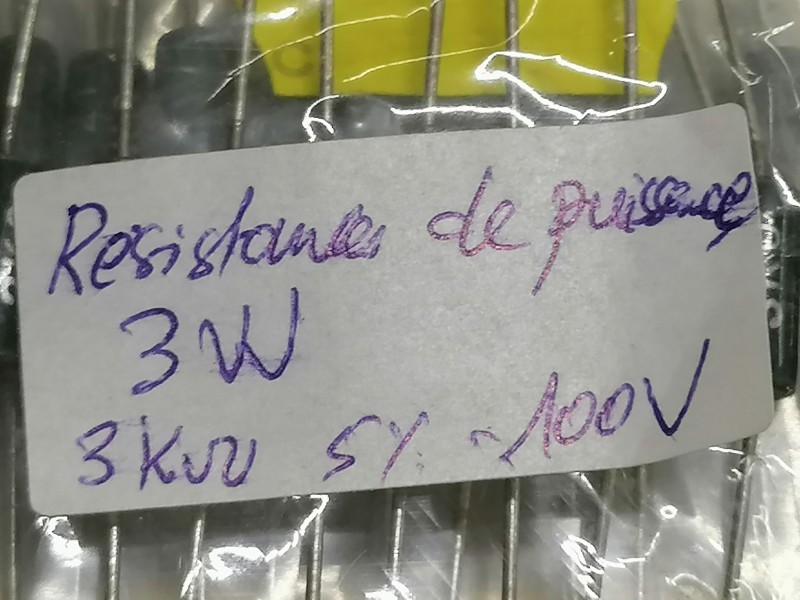 Resistances de puissance
3W
3K 5% -100V